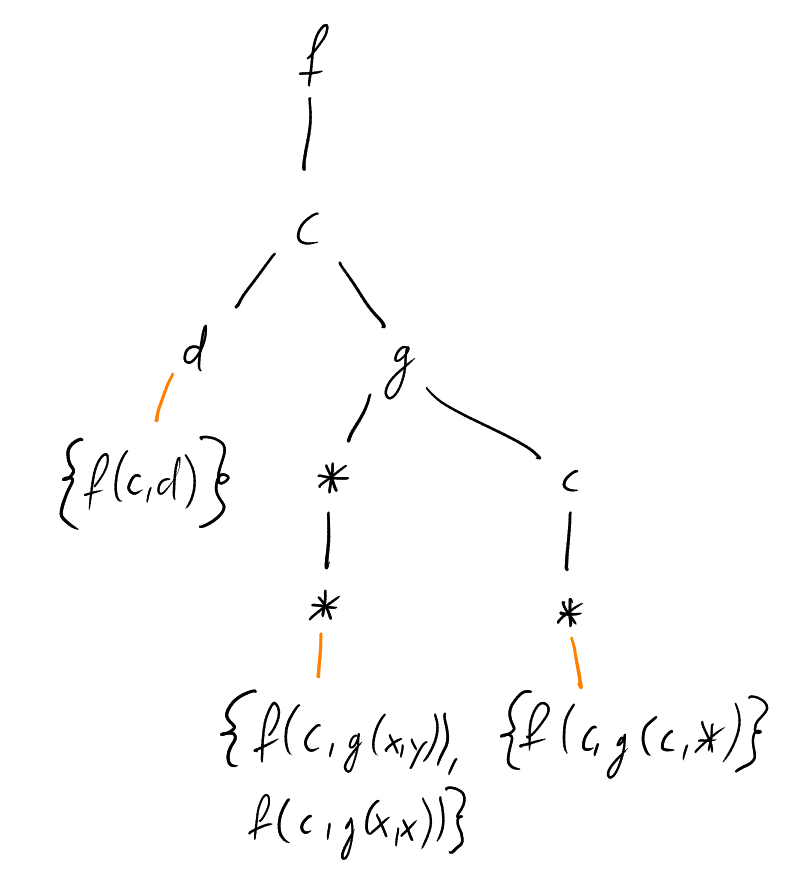 f
c
d g
{f(c,d)}
* c
* *
{f(c,g(x,y)), {f(c,g(c,*)}
f(c,g(x,x))}